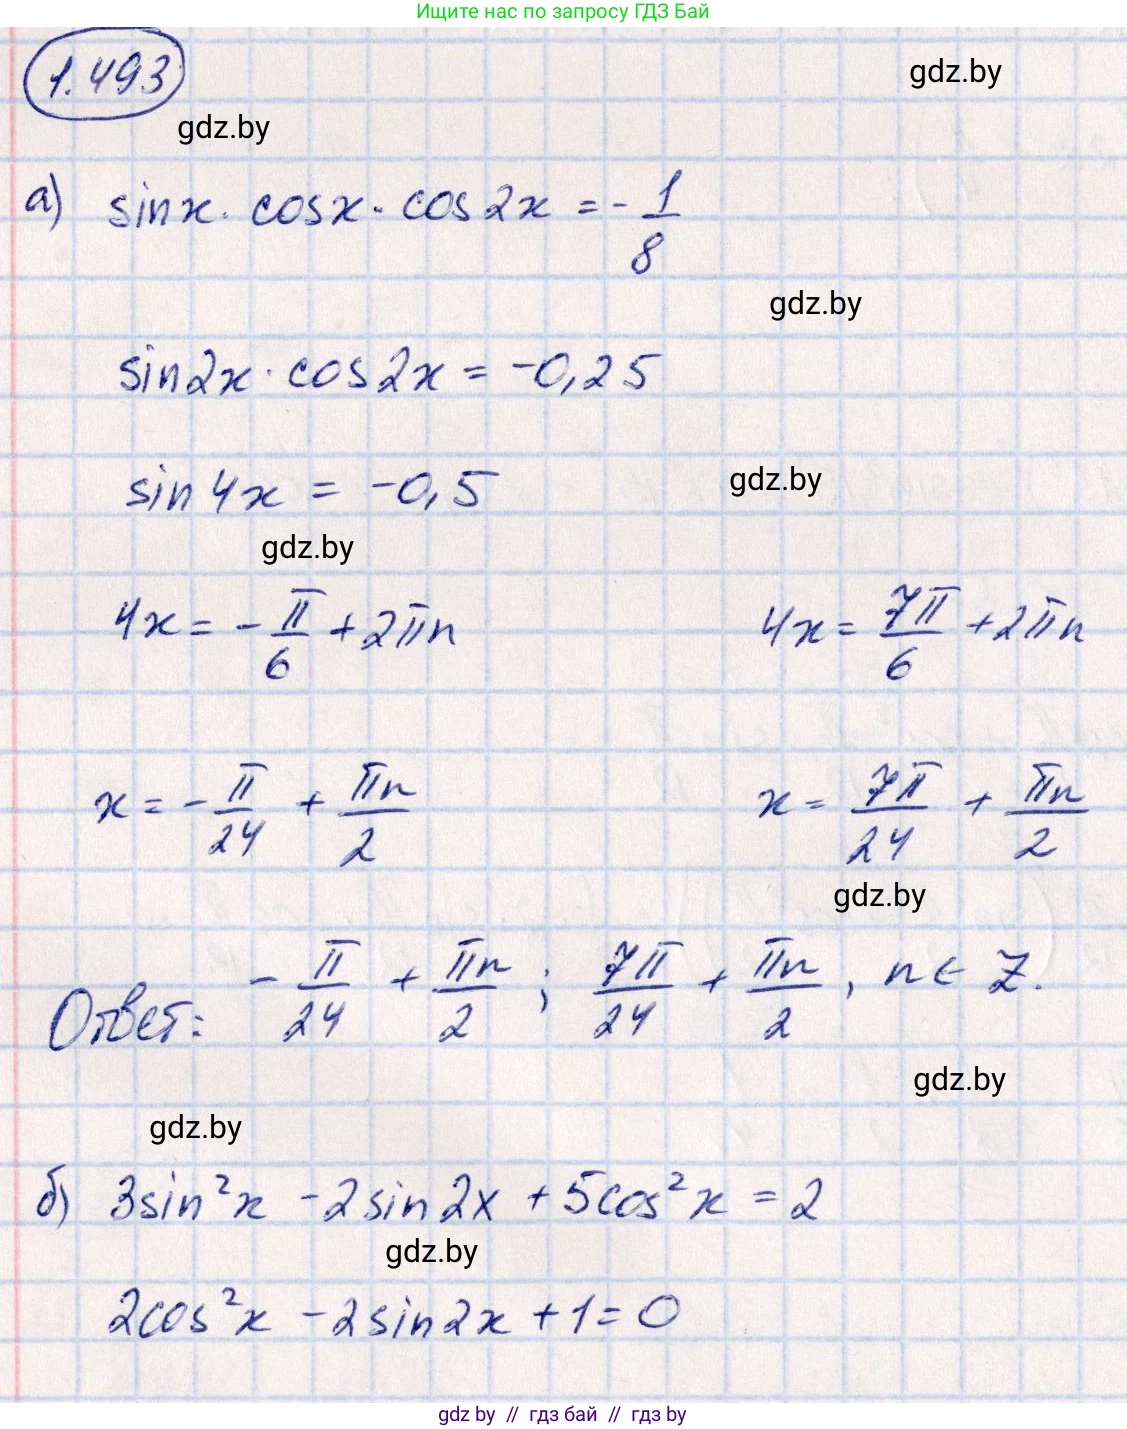 Ищите нас по запросу ГДЗ Бай
1.493
gdz.by
gdz.by
а) sinx · cosx · cos2x = - 1/8
gdz.by
sin2x · cos2x = -0,25
sin4x = -0,5
gdz.by
gdz.by
4x = - π/6 + 2πn    4x = 7π/6 + 2πn
x = - π/24 + πn/2    x = 7π/24 + πn/2
gdz.by
Ответ: - π/24 + πn/2 ; 7π/24 + πn/2 , n ∈ Z.
gdz.by
gdz.by
б) 3sin²x - 2sin2x + 5cos²x = 2
gdz.by
2cos²x - 2sin2x + 1 = 0
gdz by // гдз бай // гдз by